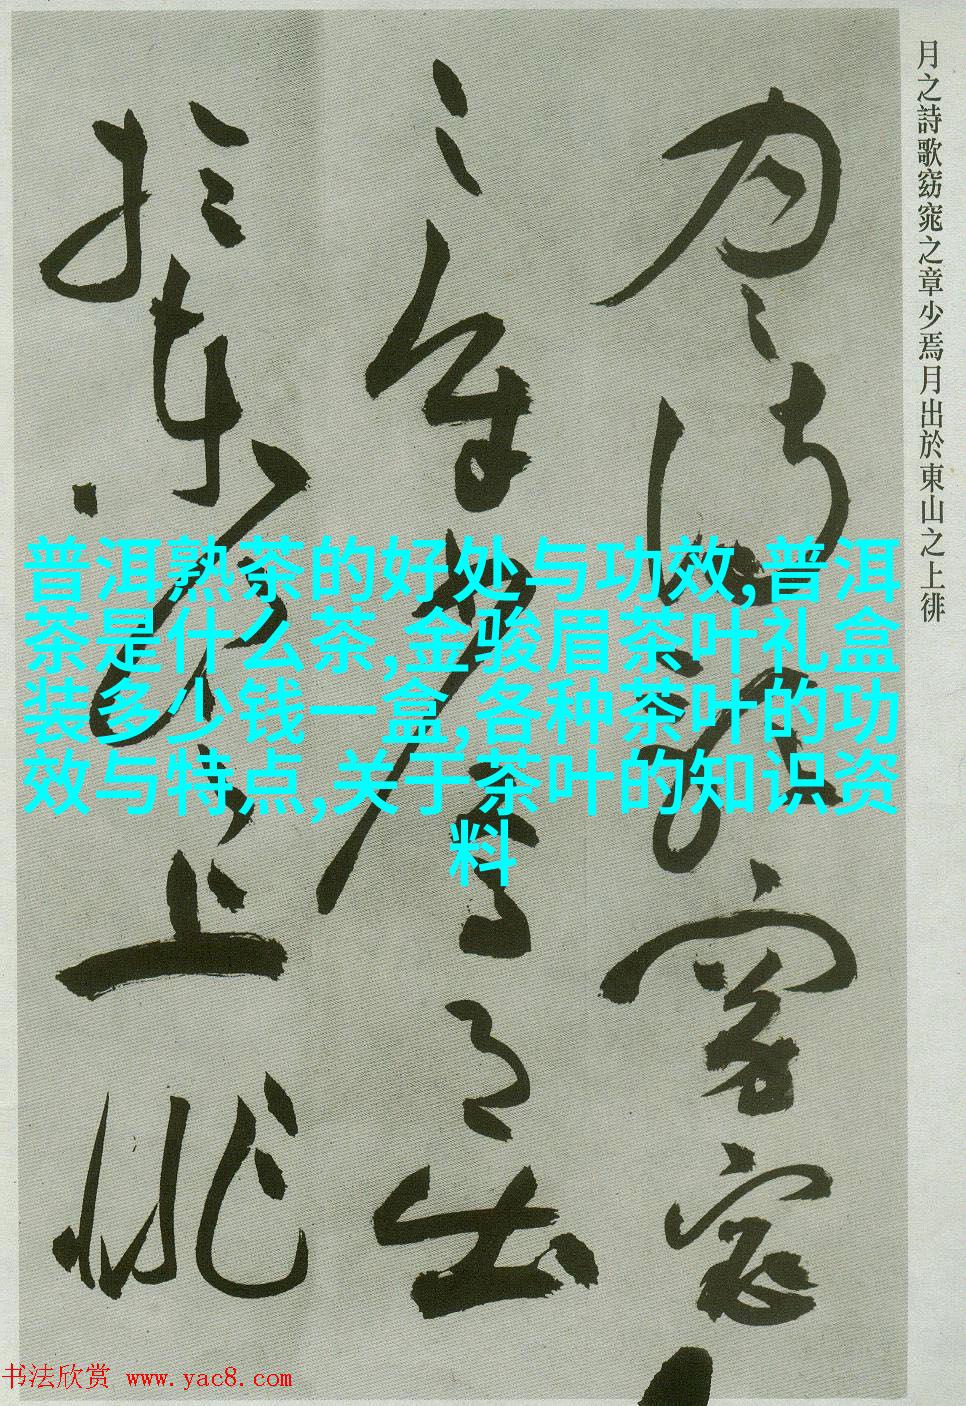 月之詩歌窈窕之章少焉月出於東山之上徘
月之詩歌窈窕
之章少焉月出
於東山之上徘
普洱熟茶的好处与功效,普洱
茶是什么茶,金骏眉茶叶礼盒
装多少钱一盒,各种茶叶的功
效与特点,关于茶叶的知识资
料
书法欣赏 www.yac8.com